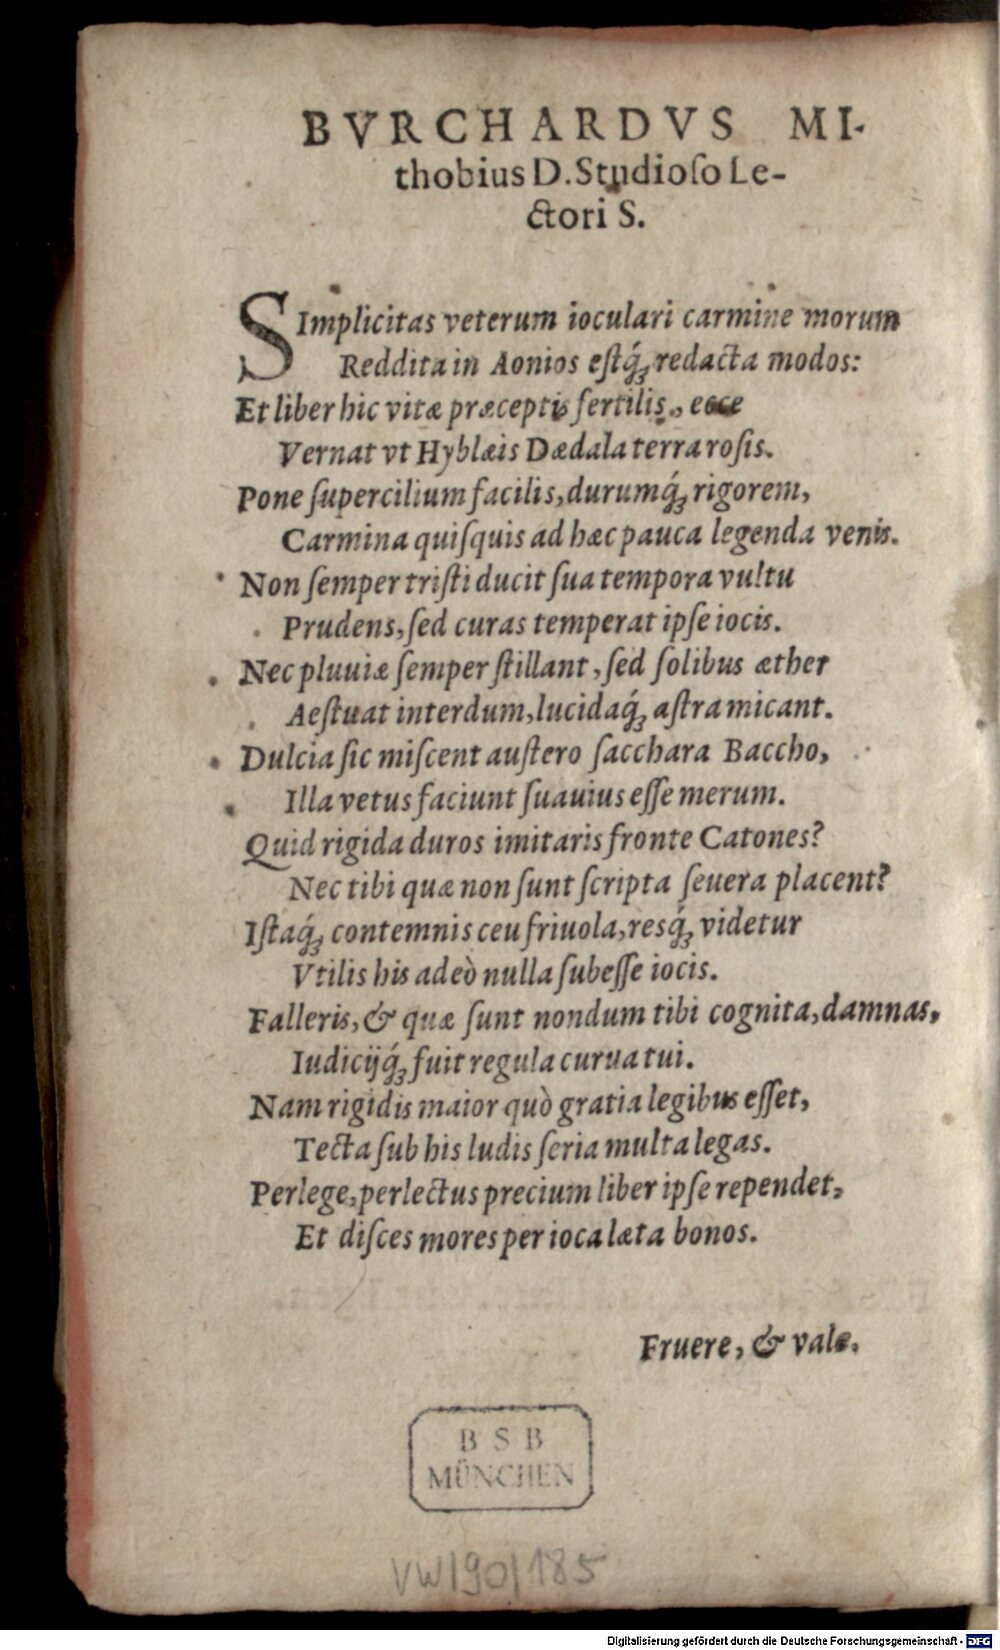 BVRCHARDVS MI-
thobius D. Studioſo Le-
ctori S.
SImplicitas veterum ioculari carmine morum
Reddita in Aonios eſtq́ꝫ redacta modos:
Et liber hic vitæ præceptis fertilis, ecce
Vernat vt Hyblæis Dædala terra roſis.
Pone ſupercilium facilis, durumq́ꝫ rigorem,
Carmina quiſquis ad hæc pauca legenda venis.
Non ſemper triſti ducit ſua tempora vultu
Prudens, ſed curas temperat ipſe iocis.
Nec pluuiæ ſemper ſtillant, ſed ſolibus æther
Aeſtuat interdum, lucidaq́ꝫ aſtra micant.
Dulcia ſic miſcent auſtero ſacchara Baccho,
Illa vetus faciunt ſuauius eſſe merum.
Quid rigida duros imitaris fronte Catones?
Nec tibi quæ non ſunt ſcripta ſeuera placent?
Iſtaq́ꝫ contemnis ceu friuola, resq́ꝫ videtur
Vtilis his adeò nulla ſubeſſe iocis.
Falleris, & quæ ſunt nondum tibi cognita, damnas,
Iudicijq́ꝫ fuit regula curua tui.
Nam rigidis maior quò gratia legibus eſſet,
Tecta ſub his ludis ſeria multa legas.
Perlege, perlectus precium liber ipſe rependet,
Et diſces mores per ioca læta bonos.
Fruere, & vale.
B S B
MÜNCHEN
VW/90/185
Digitalisierung gefördert durch die Deutsche Forschungsgemeinschaft - DFG